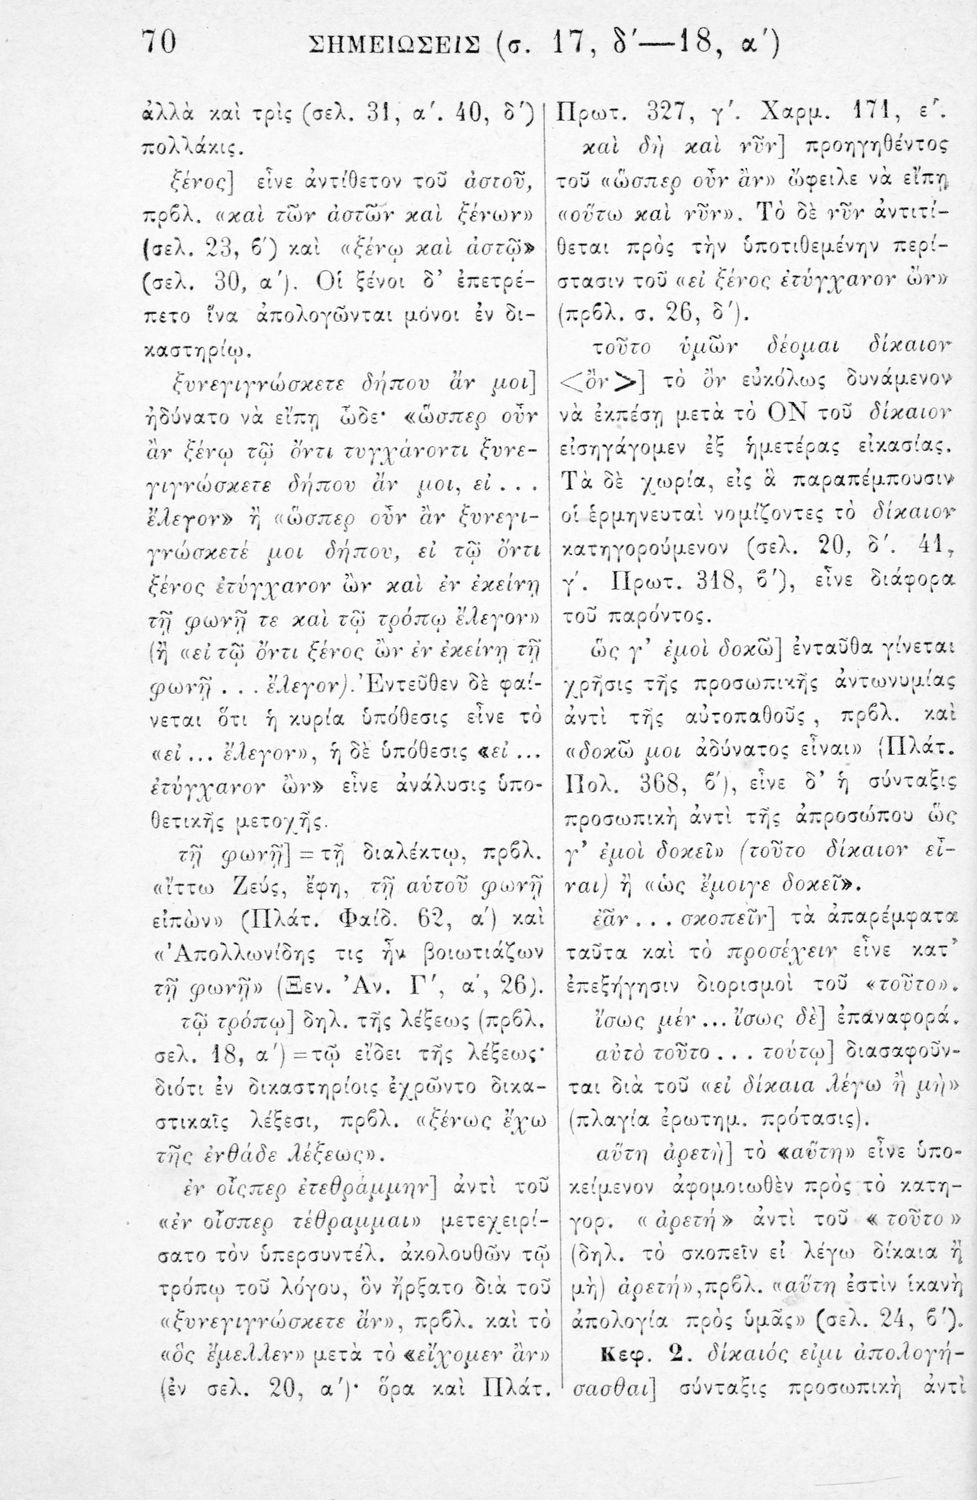 70 ΣΗΜΕΙΩΣΕΙΣ (σ. 17, δ'—18, α')
ἀλλὰ καὶ τρὶς (σελ. 31, α'. 40, δ')
πολλάκις.
ξένος] εἶνε ἀντίθετον τοῦ ἀστοῦ,
πρβλ. «καὶ τῶν ἀστῶν καὶ ξένων»
(σελ. 23, β') καὶ «ξένῳ καὶ ἀστῷ»
(σελ. 30, α'). Οἱ ξένοι δ' ἐπετρέ-
πετο ἵνα ἀπολογῶνται μόνοι ἐν δι-
καστηρίῳ.
ξυνεγιγνώσκετε δήπου ἄν μοι]
ἠδύνατο νὰ εἴπῃ ὧδε· «ὥσπερ οὖν
ἂν ξένῳ τῷ ὄντι τυγχάνοντι ξυνε-
γιγνώσκετε δήπου ἄν μοι, εἰ . . .
ἔλεγον» ἢ «ὥσπερ οὖν ἂν ξυνεγι-
γνώσκετέ μοι δήπου, εἰ τῷ ὄντι
ξένος ἐτύγχανον ὢν καὶ ἐν ἐκείνῃ
τῇ φωνῇ τε καὶ τῷ τρόπῳ ἔλεγον»
(ἢ «εἰ τῷ ὄντι ξένος ὢν ἐν ἐκείνῃ τῇ
φωνῇ . . . ἔλεγον). Ἐντεῦθεν δὲ φαί-
νεται ὅτι ἡ κυρία ὑπόθεσις εἶνε τὸ
«εἰ ... ἔλεγον», ἡ δὲ ὑπόθεσις «εἰ ...
ἐτύγχανον ὢν» εἶνε ἀνάλυσις ὑπο-
θετικῆς μετοχῆς.
τῇ φωνῇ] = τῇ διαλέκτῳ, πρβλ.
«ἴττω Ζεύς, ἔφη, τῇ αὑτοῦ φωνῇ
εἰπὼν» (Πλάτ. Φαίδ. 62, α') καὶ
«Ἀπολλωνίδης τις ἦν βοιωτιάζων
τῇ φωνῇ» (Ξεν. Ἀν. Γ', α', 26).
τῷ τρόπῳ] δηλ. τῆς λέξεως (πρβλ.
σελ. 18, α') = τῷ εἴδει τῆς λέξεως·
διότι ἐν δικαστηρίοις ἐχρῶντο δικα-
στικαῖς λέξεσι, πρβλ. «ξένως ἔχω
τῆς ἐνθάδε λέξεως».
ἐν οἷςπερ ἐτεθράμμην] ἀντὶ τοῦ
«ἐν οἷσπερ τέθραμμαι» μετεχειρί-
σατο τὸν ὑπερσυντέλ. ἀκολουθῶν τῷ
τρόπῳ τοῦ λόγου, ὃν ἤρξατο διὰ τοῦ
«ξυνεγιγνώσκετε ἄν», πρβλ. καὶ τὸ
«ὃς ἔμελλεν» μετὰ τὸ «εἴχομεν ἂν»
(ἐν σελ. 20, α')· ὅρα καὶ Πλάτ.
Πρωτ. 327, γ'. Χαρμ. 171, ε'.
καὶ δὴ καὶ νῦν] προηγηθέντος
τοῦ «ὥσπερ οὖν ἂν» ὤφειλε νὰ εἴπῃ
«οὕτω καὶ νῦν». Τὸ δὲ νῦν ἀντιτί-
θεται πρὸς τὴν ὑποτιθεμένην περί-
στασιν τοῦ «εἰ ξένος ἐτύγχανον ὢν»
(πρβλ. σ. 26, δ').
τοῦτο ὑμῶν δέομαι δίκαιον
<ὂν>] τὸ ὂν εὐκόλως δυνάμενον
νὰ ἐκπέσῃ μετὰ τὸ ΟΝ τοῦ δίκαιον
εἰσηγάγομεν ἐξ ἡμετέρας εἰκασίας.
Τὰ δὲ χωρία, εἰς ἃ παραπέμπουσιν
οἱ ἑρμηνευταὶ νομίζοντες τὸ δίκαιον
κατηγορούμενον (σελ. 20, δ'. 41,
γ'. Πρωτ. 318, β'), εἶνε διάφορα
τοῦ παρόντος.
ὥς γ' ἐμοὶ δοκῶ] ἐνταῦθα γίνεται
χρῆσις τῆς προσωπικῆς ἀντωνυμίας
ἀντὶ τῆς αὐτοπαθοῦς, πρβλ. καὶ
«δοκῶ μοι ἀδύνατος εἶναι» (Πλάτ.
Πολ. 368, β'), εἶνε δ' ἡ σύνταξις
προσωπικὴ ἀντὶ τῆς ἀπροσώπου ὥς
γ' ἐμοὶ δοκεῖ» (τοῦτο δίκαιον εἶ-
ναι) ἢ «ὡς ἔμοιγε δοκεῖ».
ἐᾶν . . . σκοπεῖν] τὰ ἀπαρέμφατα
ταῦτα καὶ τὸ προσέχειν εἶνε κατ'
ἐπεξήγησιν διορισμοὶ τοῦ «τοῦτο».
ἴσως μέν ... ἴσως δὲ] ἐπαναφορά.
αὐτὸ τοῦτο . . . τούτῳ] διασαφοῦν-
ται διὰ τοῦ «εἰ δίκαια λέγω ἢ μὴ»
(πλαγία ἐρωτημ. πρότασις).
αὕτη ἀρετὴ] τὸ «αὕτη» εἶνε ὑπο-
κείμενον ἀφομοιωθὲν πρὸς τὸ κατη-
γορ. «ἀρετή» ἀντὶ τοῦ «τοῦτο»
(δηλ. τὸ σκοπεῖν εἰ λέγω δίκαια ἢ
μὴ) ἀρετή», πρβλ. «αὕτη ἐστὶν ἱκανὴ
ἀπολογία πρὸς ὑμᾶς» (σελ. 24, β').
Κεφ. 2. δίκαιός εἰμι ἀπολογή-
σασθαι] σύνταξις προσωπικὴ ἀντὶ